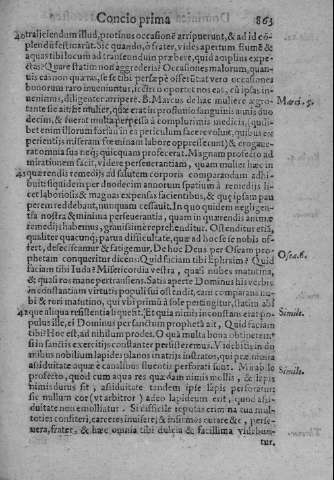 Concio prima 863
40 traijciendum illud, protinus occasionē arripuerunt, & ad id cō-
plendū festinarūt. Sic quando, ò frater, vides apertum flumē &
aquas tibi locum ad transeundum præbere, quid amplius expe-
ctas? Quare statim non aggrederis? Occasiones malorum, quan-
uis eas non quæras, sæpe se tibi persæpè offerūt at vero occasiones
bonorum raro inueniūtur, ideo oportet nos eas, cū ipsas in-
uenimus, diligenter arripere. B. Marcus de hac muliere ægro- Marci. 5.
tante sic ait: & mulier, quæ erat in profluuio sanguinis annis duo
decim, & fuerat multa perpessa à compluribus medicis, (quili-
bet enim illorum forsan in ea periculum facere voluit, quibus ex
perientijs miseram fœminam labore oppressere) & erogaue-
rat omnia sua nec quicquam profecerat. Magnam profecto ad
mirationem facit, videre perseuerantiam, quam mulier hæc in
41 quærendis remedijs ad salutem corporis comparandam adhi-
buit: siquidem per duodecim annorum spatium à remedijs li-
cet laboriosis & magnas expensas facientibus, & quę ipsam pau
perem reddebant, nunquam cessauit. In quo quidem negligen-
tia nostra & minima perseuerantia, quam in quærendis animæ
remedijs habemus, grauissimè reprehenditur. Ostenditur etiā,
qualiter quacunq; parua difficultate, quæ ad hoc se se nobis of-
fert, deficeamur & fatigemur. De hoc Deus per Oseam pro-
phetam conqueritur dicens: Quid faciam tibi Ephraim? Quid Osea. 6.
faciam tibi Iuda? Misericordia vestra, quasi nubes matutina,
& quasi ros mane pertransiens. Satis aperte Dominus his verbis
inconstantiam virtutis populi sui ostendit, eam comparans nu-
bi & rori matutino, qui vbi primū à sole pertingitur, statim absq
42 que aliqua resistentia liquescit. Et quia nimis inconstans erat po- Simile.
pulus ille, ei Dominus per sanctum prophetā ait, Quid faciam
tibi? Hoc est, ad nihilum prodes. O quā multa bona obtinerem9
si in sanctis exercitijs constanter persisteremus. Videbitis in do
mibus nobilium lapides planos in atrijs instratos, qui præ nimia
assiduitate aquæ è canalibus fluentis perforati sunt. Mirabile Simile.
profecto, quod cum aqua res quædam nimis mollis, & lapis
nimis durus sit, assiduitate tandem ipse lapis perforatur:
sic nullum cor (vt arbitror) adeo lapideum erit, quod assi-
duitate non emolliatur. Si difficile reputas crimina tua mul-
toties confiteri, carceres inuisere, & infirmos curare &c. perse-
uera, frater, & hæc omnia tibi dulcia & facillima videbun-
tur.